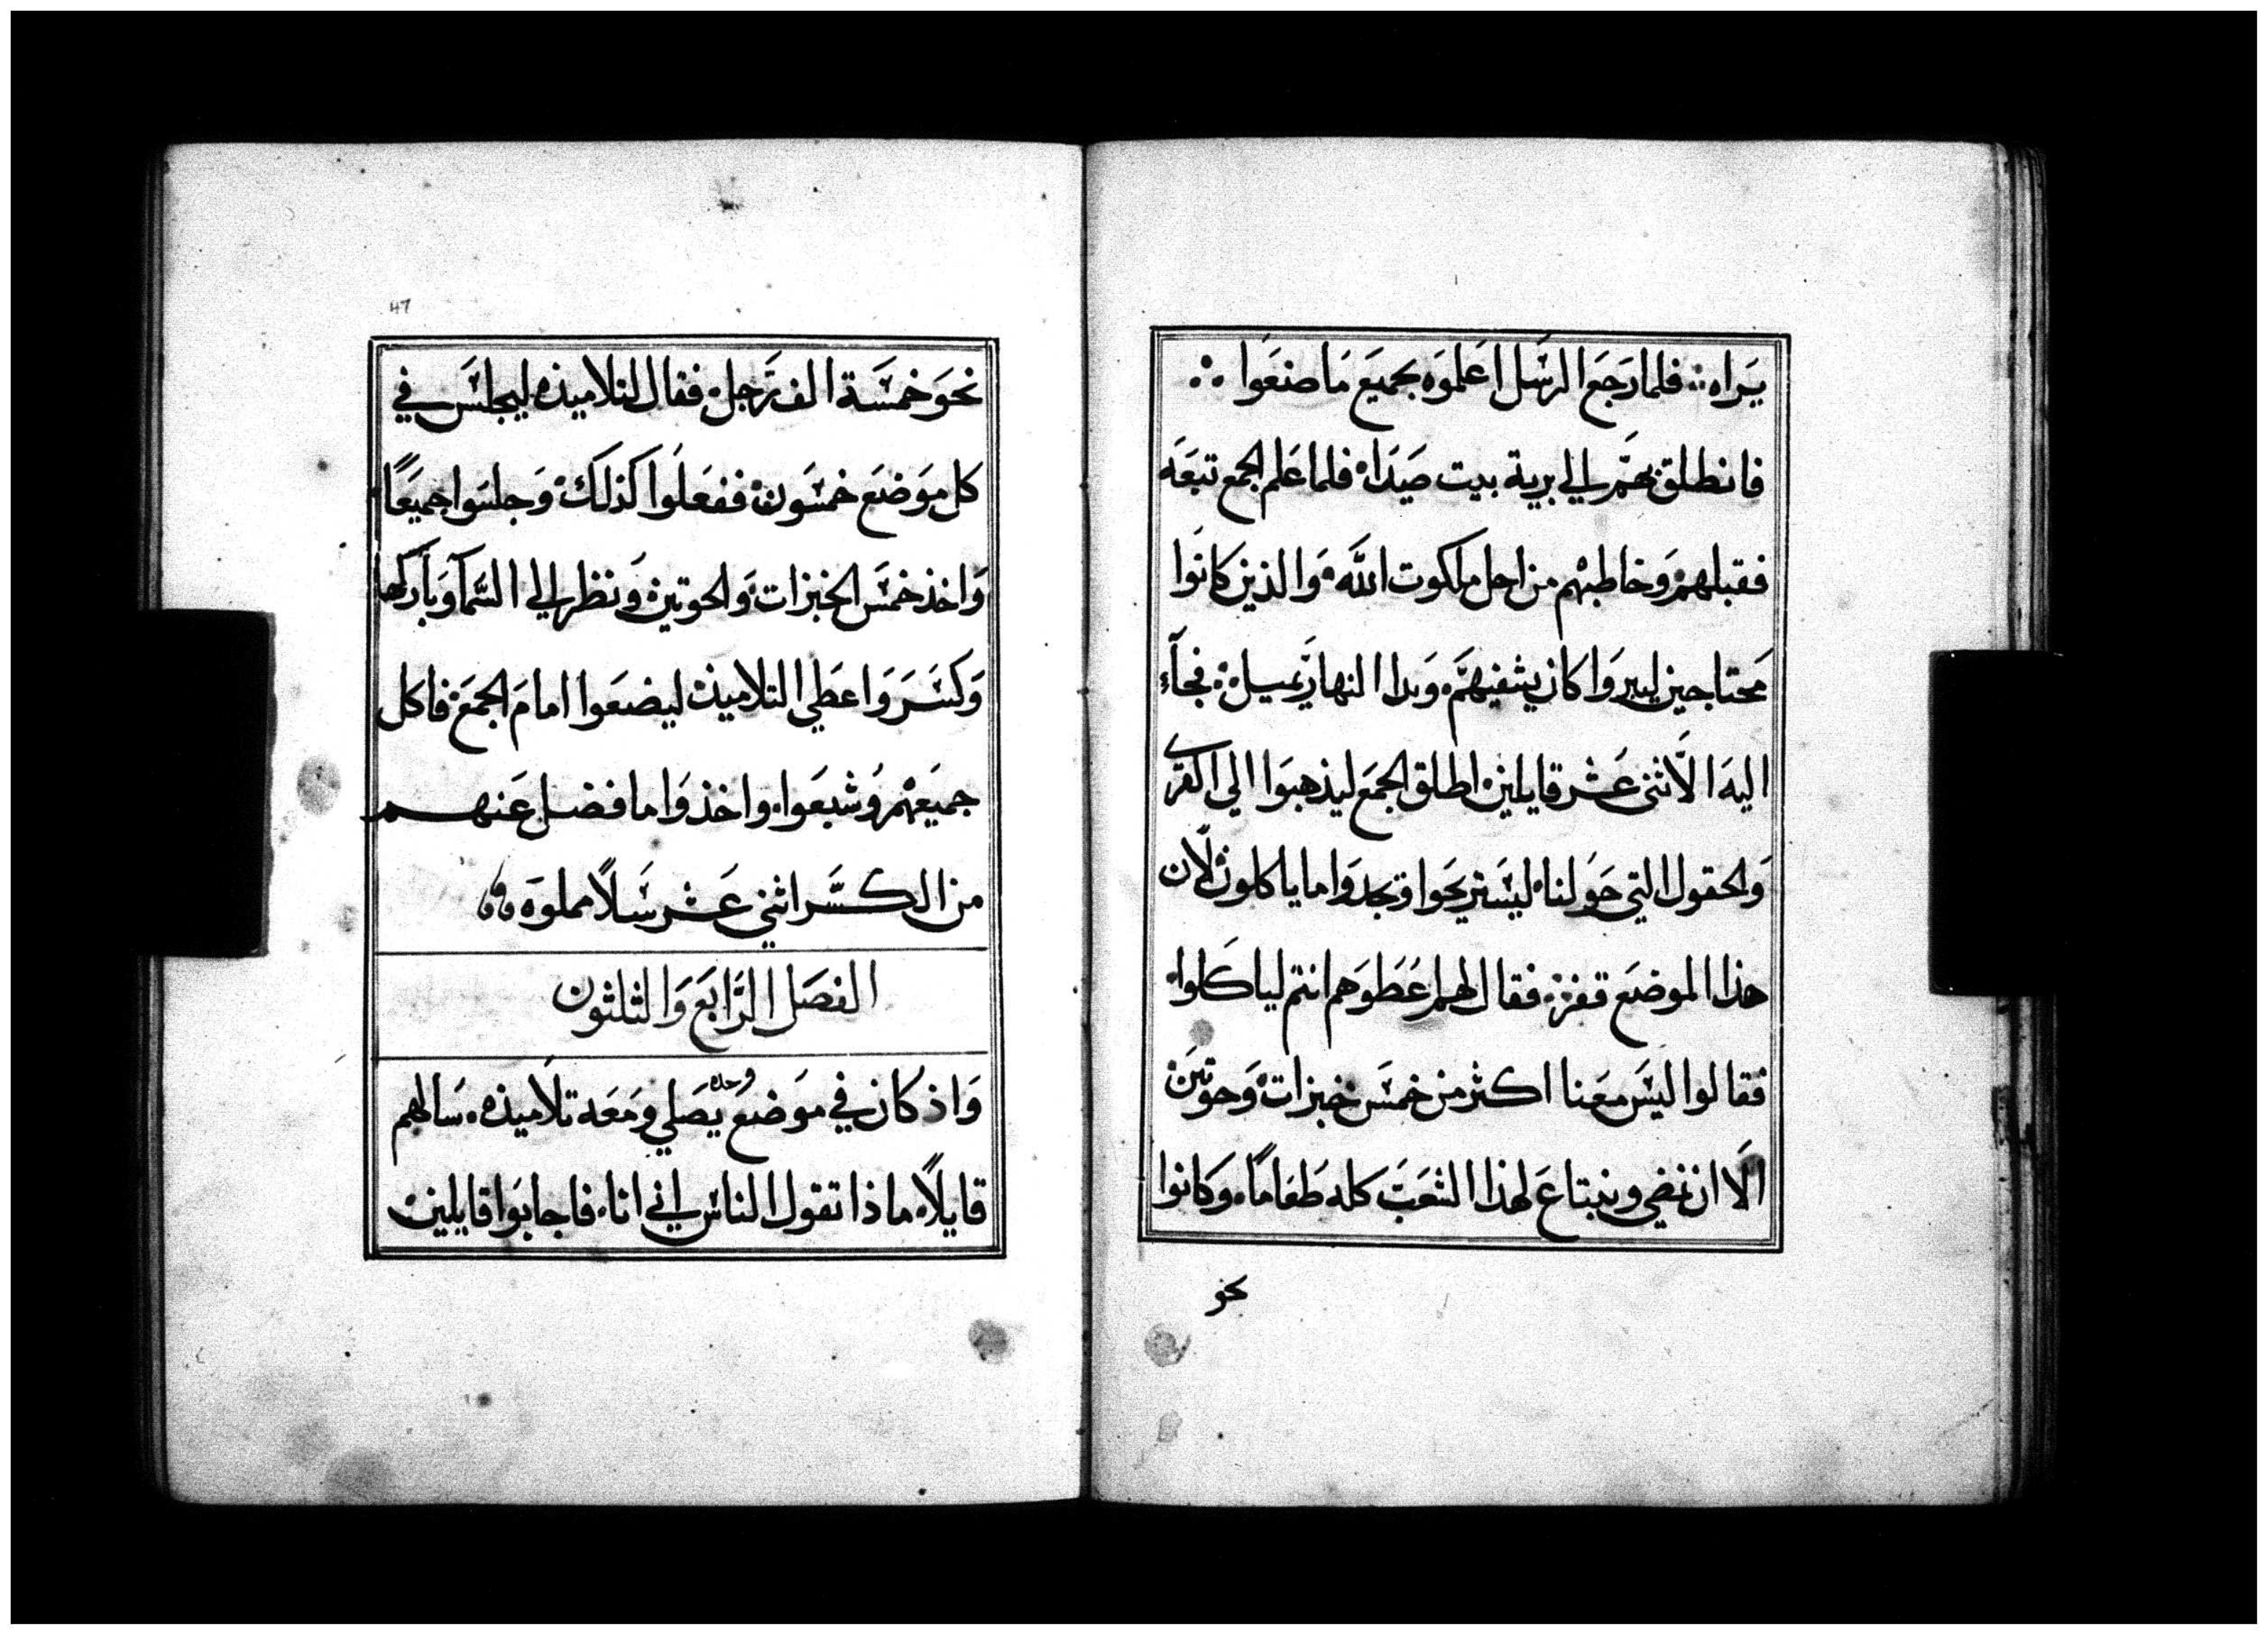 يَراه ؞ فلما رَجَع الرسَل اعَلموَه بجميَع مَا صنعَوا ؞
فانطلق بهَم الي برية بيت صَيَداه فلما عَلم الجمع تبعَه
فقبلهم وَخاطبهم من اجل ملكوت الله وَالذين كانوَا
مَحتاجين ليبروَا كان يشفيهَم وَبدا النهار يَميل فجآء
اليه الاَثني عَشر قايلين اطلق الجمَع ليذهبوَا الي القرَي
وَالحقول التي حَولنا ليسَتريحَوا وَيجدوَا ما ياكلون لاَن
هذا الموضَع قفر فقال لهم اعَطوَهم انتم لياكلوا
فقالوا ليسَ معَنا اكثر من خمسَ خبزات وَحوتيَن
الاَ ان نمضي وَنبتاعَ لهذا الشعَبَ كله طعَاماً وَكانوا
نحو
47
نحوَ خمسَة الف رَجل فقال لتلاميذه ليجلسَ في
كل موَضعَ خمسَون ففعَلوَا كذلك وَجلسَوا جميعَاً
وَاخذ خمسَ الخبزات وَالحوتين وَنظر الي السَمآ وَبارَكها
وَكسَرَ وَاعطَي التلاميذ ليضعَوا امامَ الجمَع فاكل
جميَعهم وَشبعَوا واخذوَا ما فضل عَنهم
من الكسَر اثني عَشر سَلاً مملوَه
الفصَل الرَابَع وَالثلثون
وَاذ كان في موَضع وحده يصَلي وَمعَه تلاَميذه سَالهم
قايلاً ماذا تقول الناسَ اني انا فاجابوَا قايلين